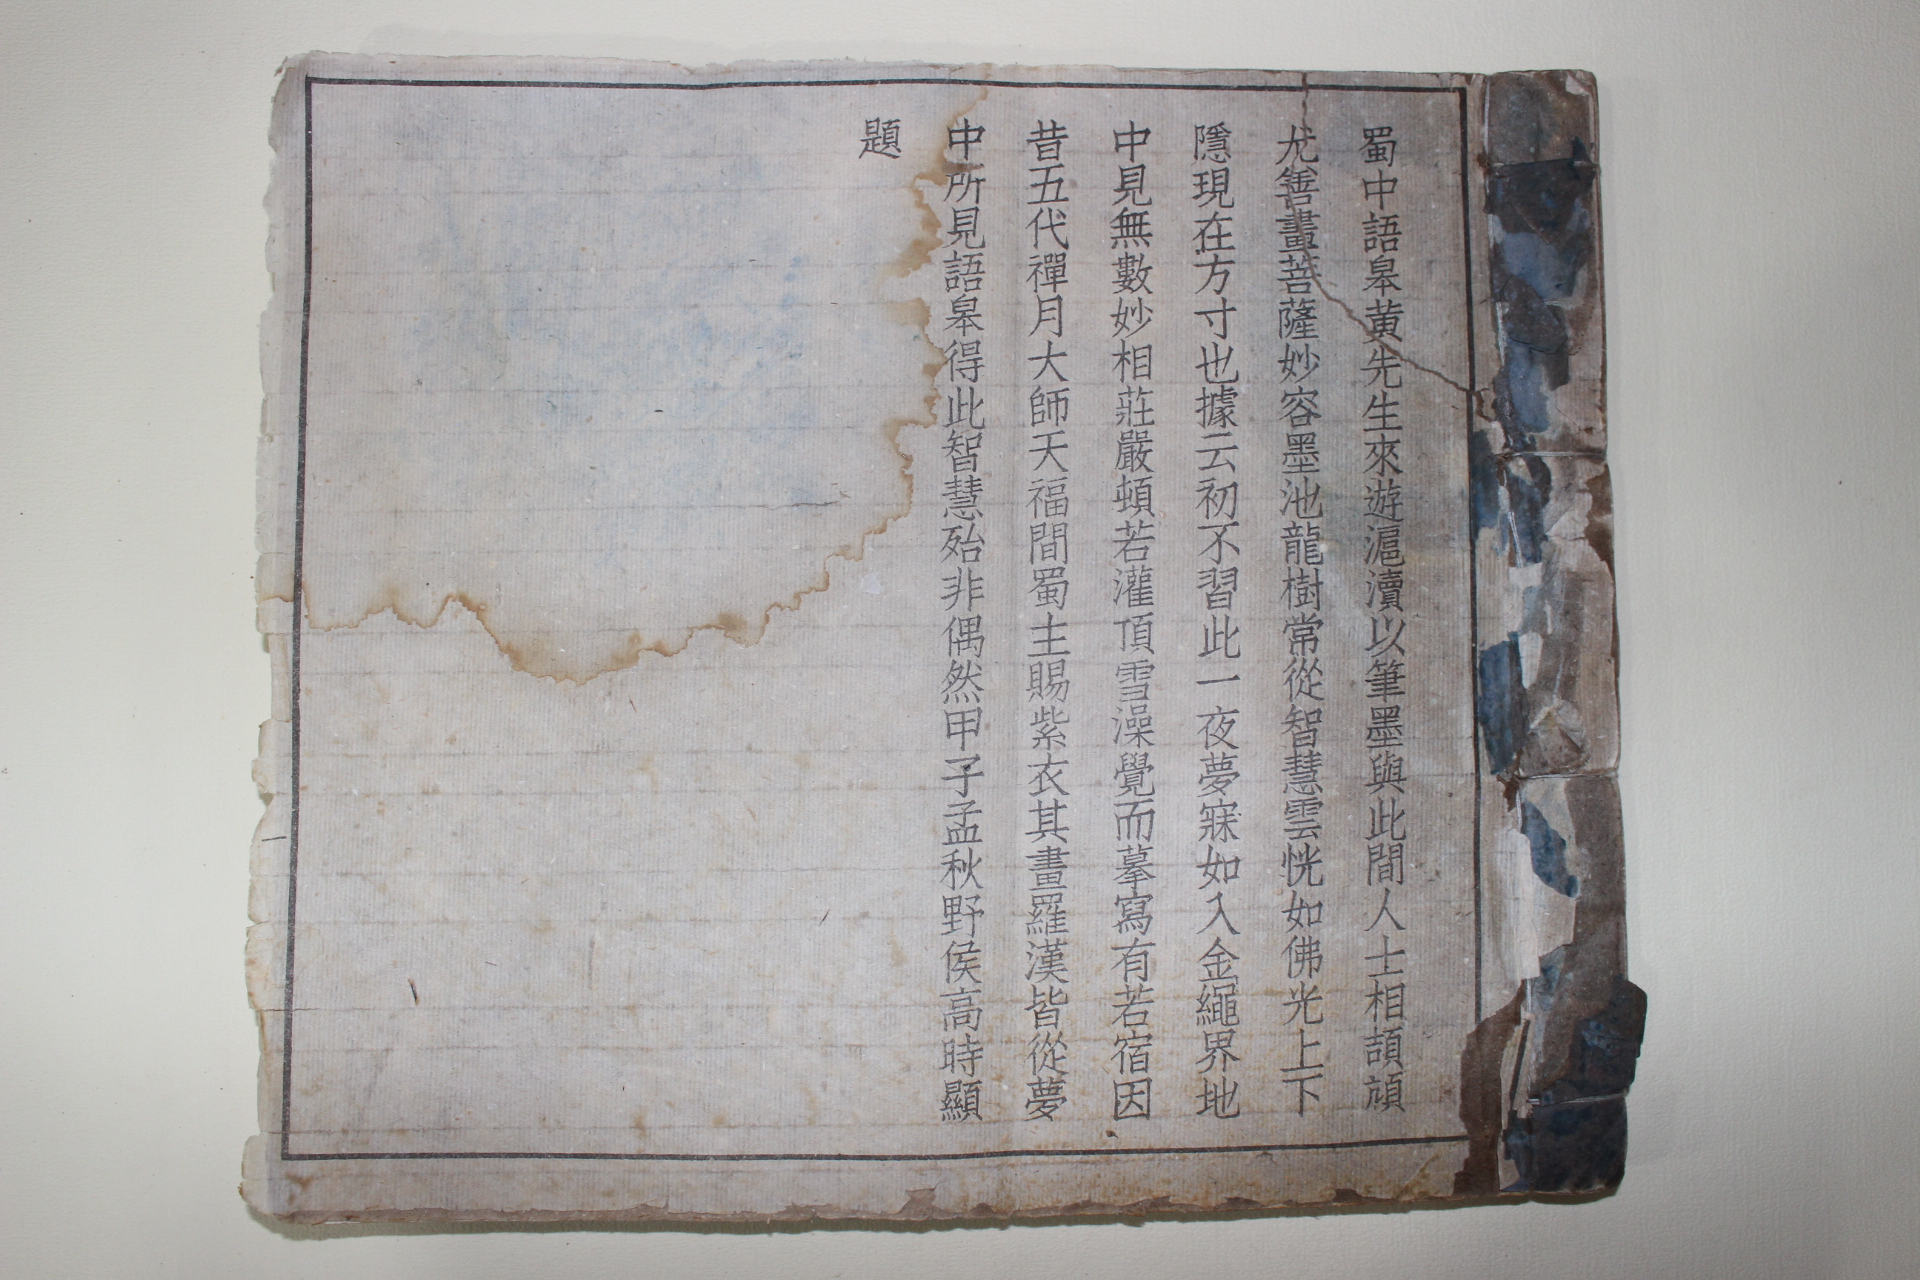 蜀中語皋黃先生來遊滬瀆以筆墨與此間人士相頡頏
尤善畫菩薩妙容墨池龍樹常從智慧雲恍如佛光上下
隱現在方寸也據云初不習此一夜夢寐如入金繩界地
中見無數妙相莊嚴頓若灌頂雪澡覺而摹寫有若宿因
昔五代禪月大師天福間蜀主賜紫衣其畫羅漢皆從夢
中所見語皋得此智慧殆非偶然甲子孟秋野侯高時顯
題